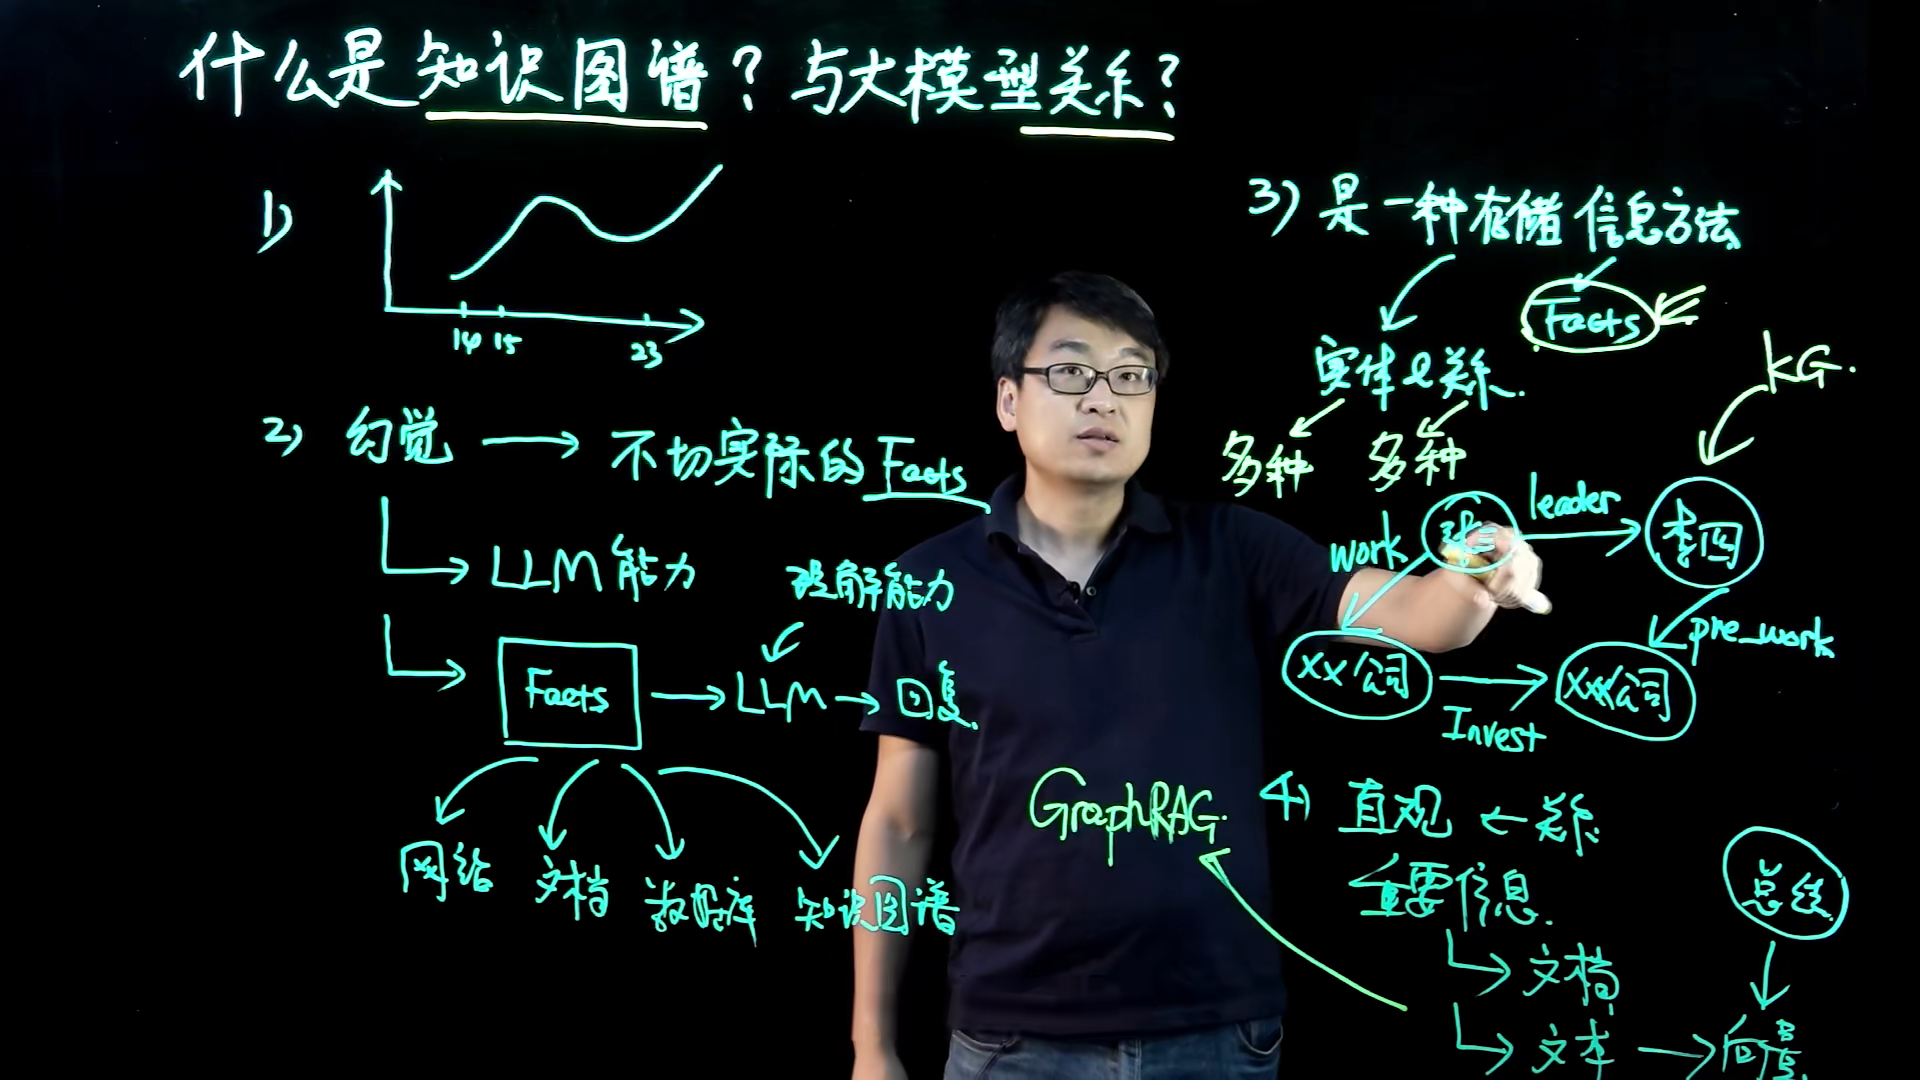 什么是知识图谱? 与大模型关系?
1)
14 15 23
2) 幻觉 → 不切实际的 Facts
LLM能力
理解能力
Facts → LLM → 回复.
网络 文档 数据库 知识图谱
3) 是一种存储信息方法
Facts
实体与关系.
多种 多种
KG.
张三 leader 李四
work pre_work
XX公司 Invest XXX公司
GraphRAG.
4) 直观 ← 关系.
重要信息.
文档
总结
文本 → 向量